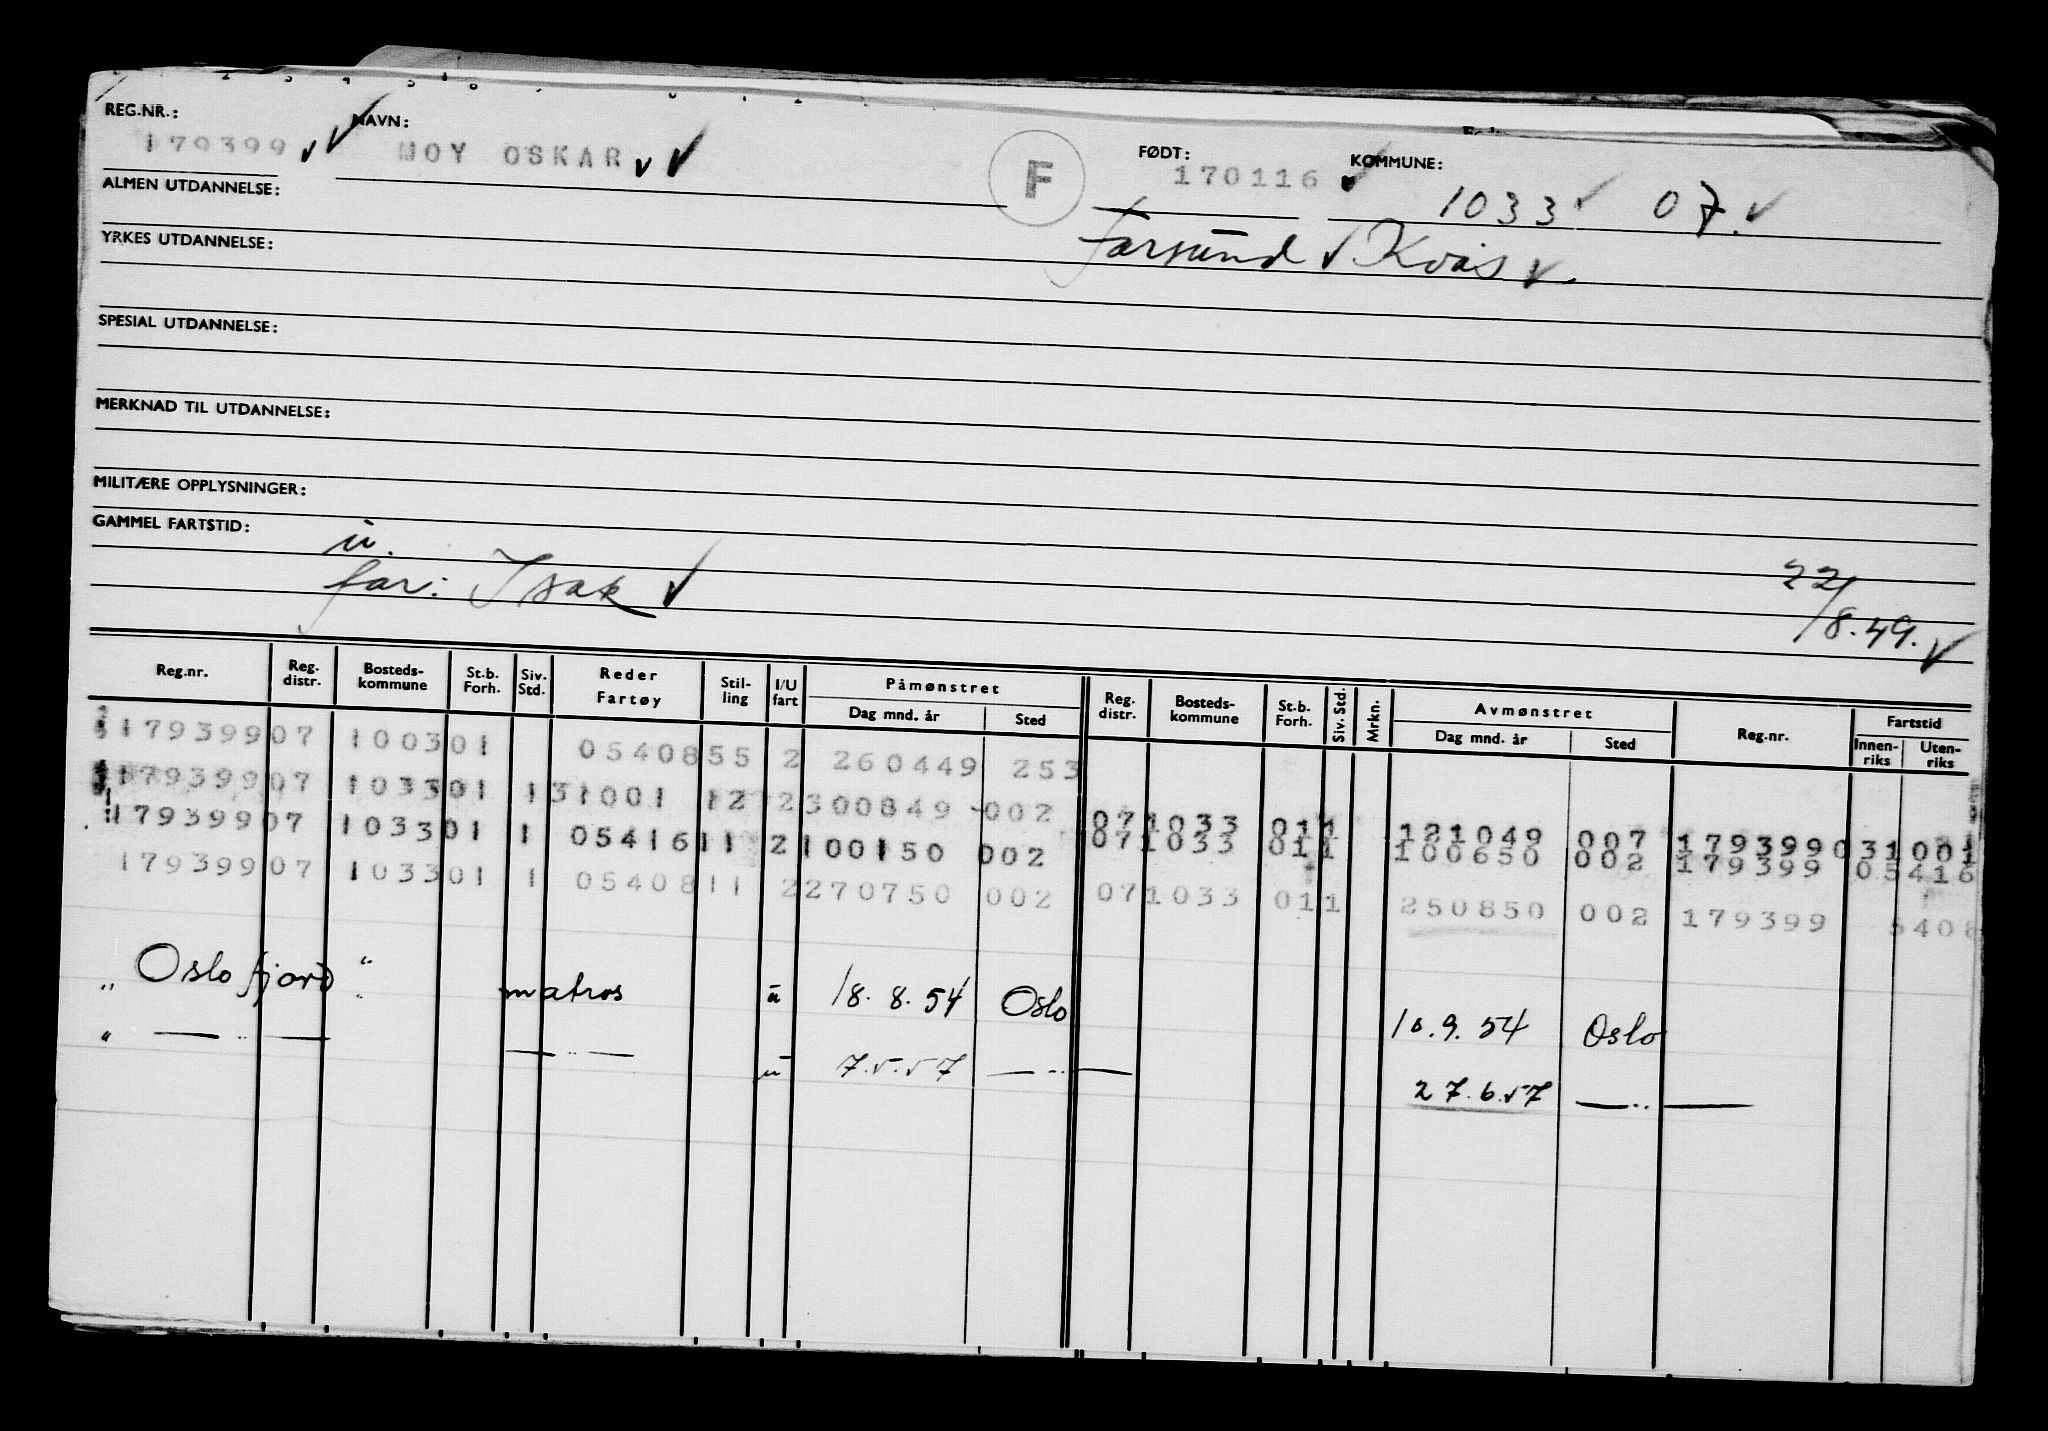 REG.NR.: NAVN: FØDT: KOMMUNE:
179399 MOY OSKAR F 170116 1033 07.
ALMEN UTDANNELSE:
Farsund Kvås
YRKES UTDANNELSE:
SPESIAL UTDANNELSE:
MERKNAD TIL UTDANNELSE:
MILITÆRE OPPLYSNINGER:
GAMMEL FARTSTID:
u.
far: Isak
22/8.49.
Reg.nr. Reg. distr. Bosteds-kommune St.b. Forh. Siv. Std. Reder Fartøy Stil-ling I/U fart Påmønstret Dag mnd. år Sted Reg. distr. Bosteds-kommune St.b. Forh. Siv. Std. Mrkn. Avmønstret Dag mnd. år Sted Reg.nr. Fartstid Innen-riks Uten-riks
179399 07 1003 01 05408 55 2 260449 253
179399 07 1033 01 1 31001 12 2 300849 002 07 1033 01 1 121049 007 179399 031001
179399 07 1033 01 1 05416 11 2 100150 002 07 1033 01 1 100650 002 179399 05416
179399 07 1033 01 1 05408 11 2 270750 002 07 1033 01 1 250850 002 179399 5408
„ Oslofjord “ matros u 18.8.54 Oslo 10.9.54 Oslo
„ — „ — — „ — u 7.5.57 — „ — 27.6.57 — „ —